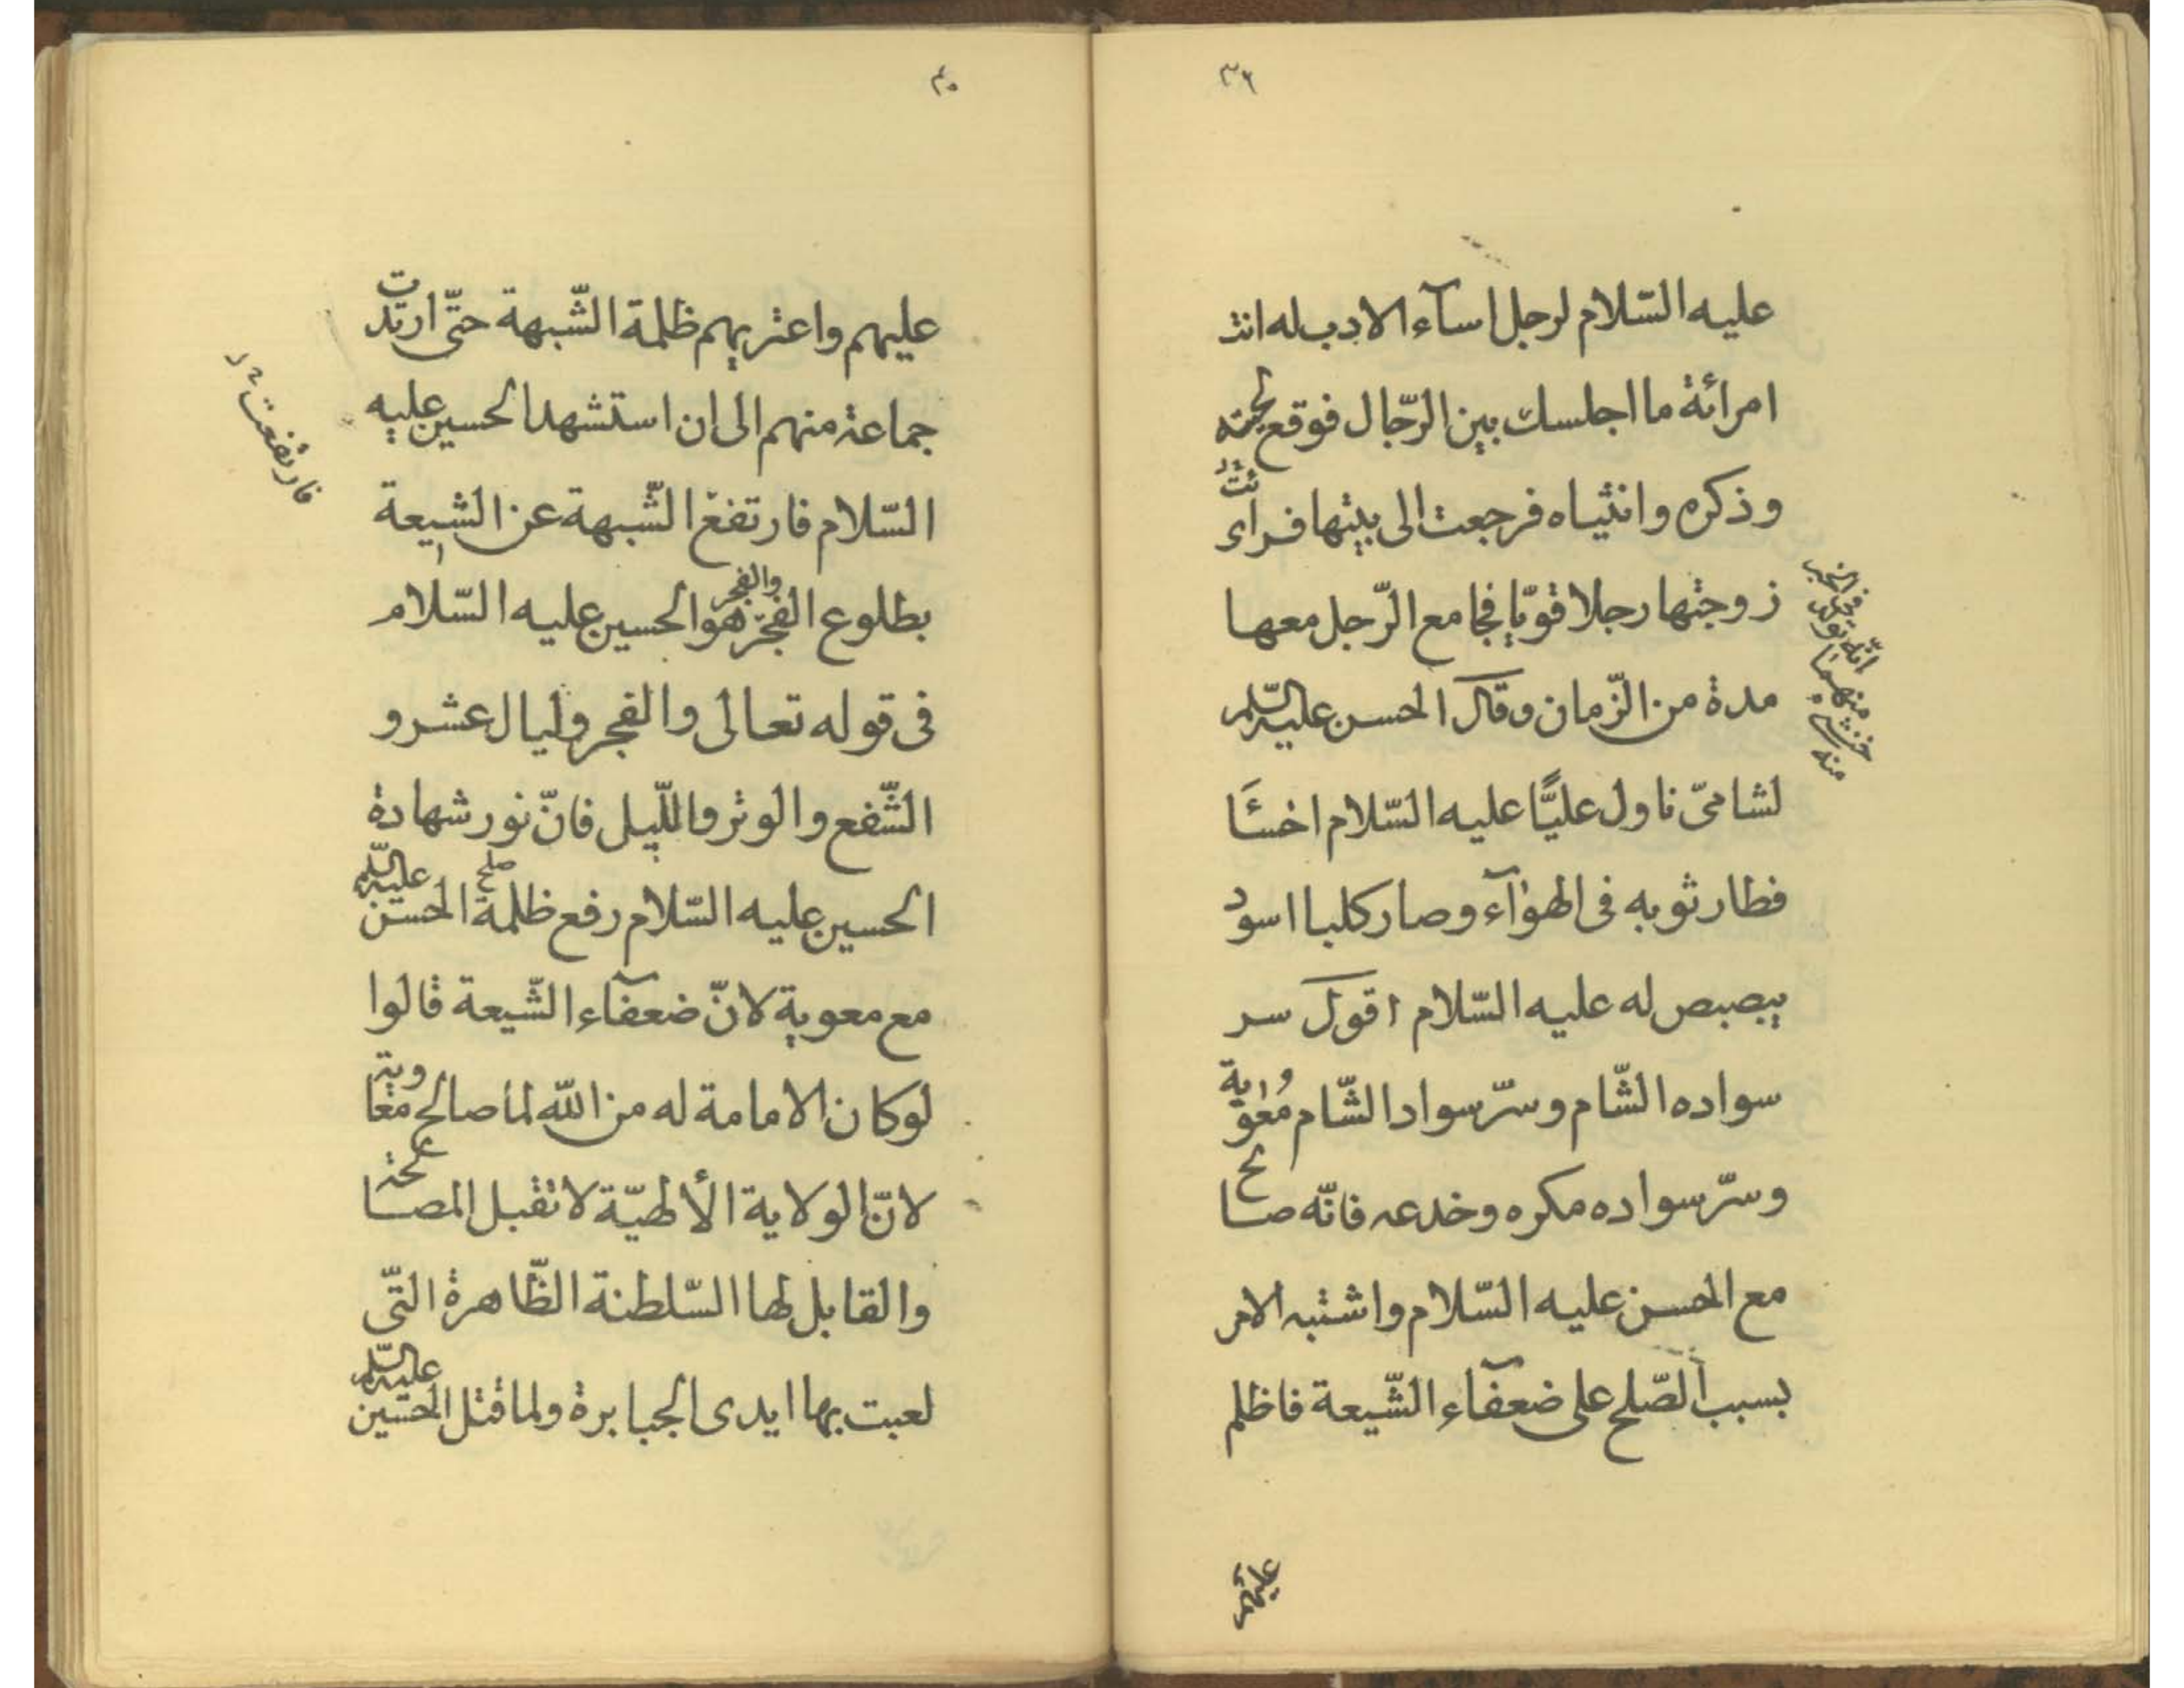 ٣٩
عليه السّلام لرجل اسآء الادب له انت
امرائة ما اجلسك بين الرّجال فوقع لحيته
وذكره وانثياه فرجعت الى بيتها فرائت
زوجتها رجلا قويّا فجامع الرّجل معها
مدة من الزّمان وقال الحسن عليه السّلم
لشامىّ ناول عليًّا عليه السّلام اخسَٔا
فطار ثوبه فى الهوٰآء وصار كلبا اسود
يبصبص له عليه السّلام اقول سر
سواده الشّام وسرّ سواد الشّام مُعٰوية
وسرّ سواده مكره وخدعه فانّه صالح
مع الحسن عليه السّلام واشتبه الامر
بسبب الصّلح على ضعفآء الشّيعة فاظلم
فى الخبر
انّه تولد
منهما
خنثى
منه
عليهم
٤٠
عليهم واعتريهم ظلمة الشّبهة حتّى ارتدّت
جماعة منهم الى ان استشهد الحسين عليه
السّلام فارتفع الشّبهة عن الشيعة
بطلوع الفجر والفجر هو الحسين عليه السّلام
فى قوله تعالى والفجر وليال عشر و
الشّفع والوتر والليل فانّ نور شهادة
الحسين عليه السّلام رفع ظلمة صلح الحسن عليه السّلم
مع معوية لانّ ضعفآء الشّيعة قالوا
لو كان الامامة له من اللّه لما صالح معاوية
لانّ الولاية الألهيّة لا تقبل المصالحة
والقابل لها السّلطنة الظّاهرة التّى
لعبت بها ايدى الجبابرة ولما قتل الحسين عليه السّلم
فارتفعت